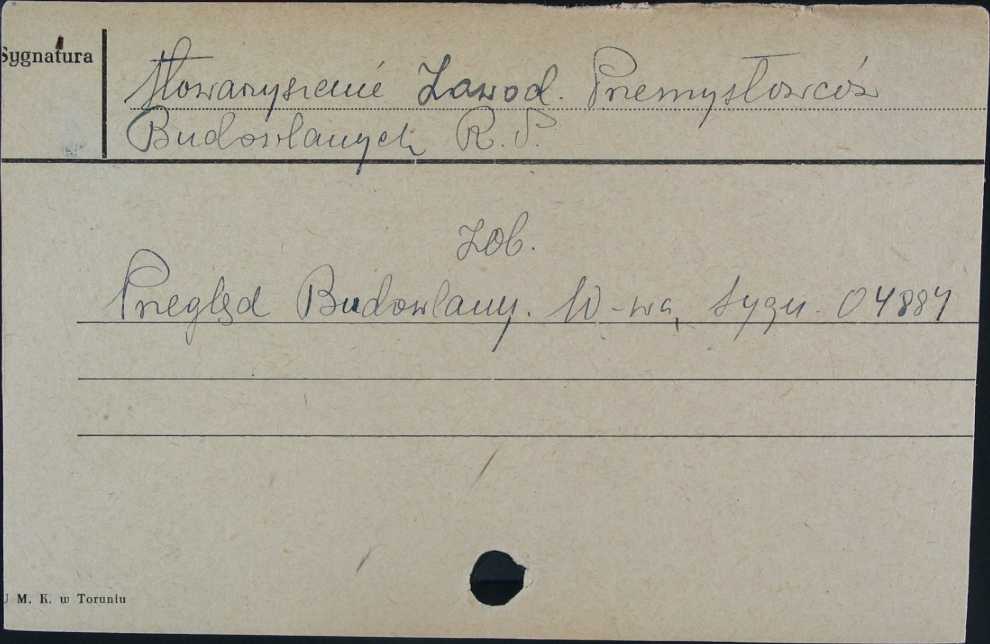 Sygnatura
Stowarzyszenie Zawod. Przemysłowców
Budowlanych R.P.
Zob.
Przegląd Budowlany. W-wa, sygn. 04884
U M. K. w Toruniu